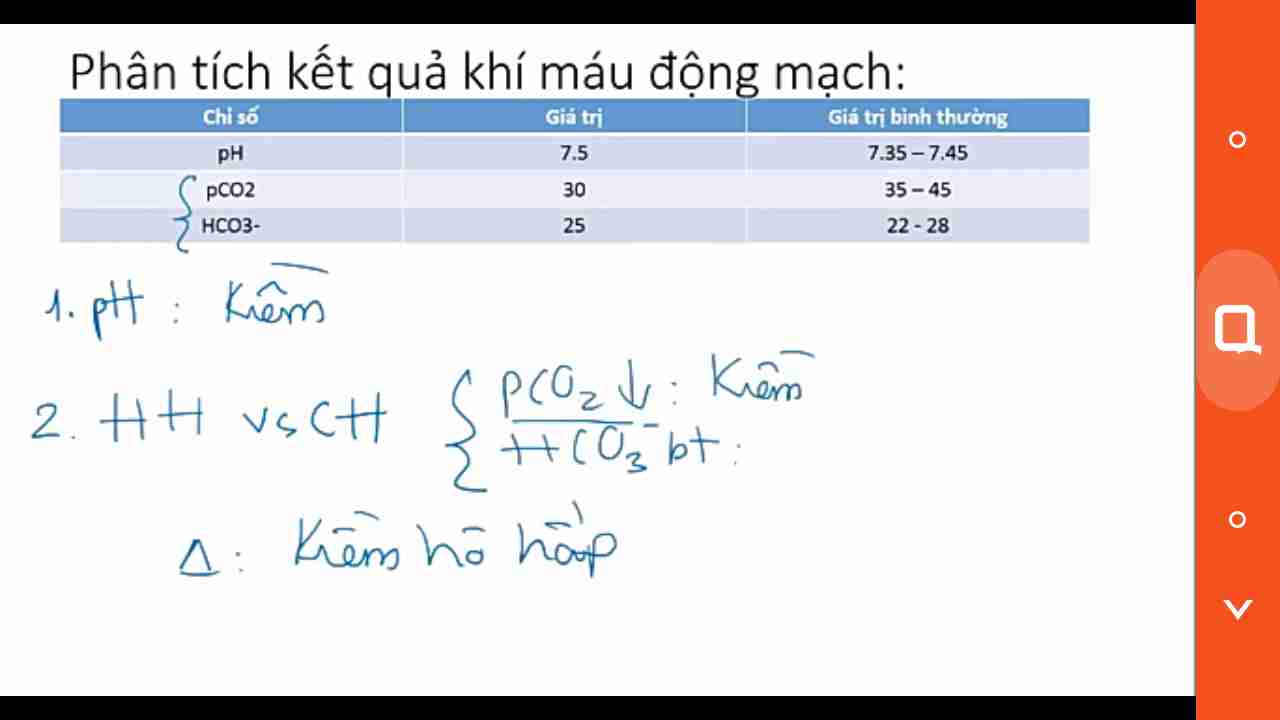 Phân tích kết quả khí máu động mạch:
Chỉ số Giá trị Giá trị bình thường
pH 7.5 7.35 – 7.45
pCO2 30 35 – 45
HCO3- 25 22 - 28
1. pH : Kiềm
2. HH vs CH
pCO2 ↓ : Kiềm
HCO3- bt :
Δ : Kiềm hô hấp